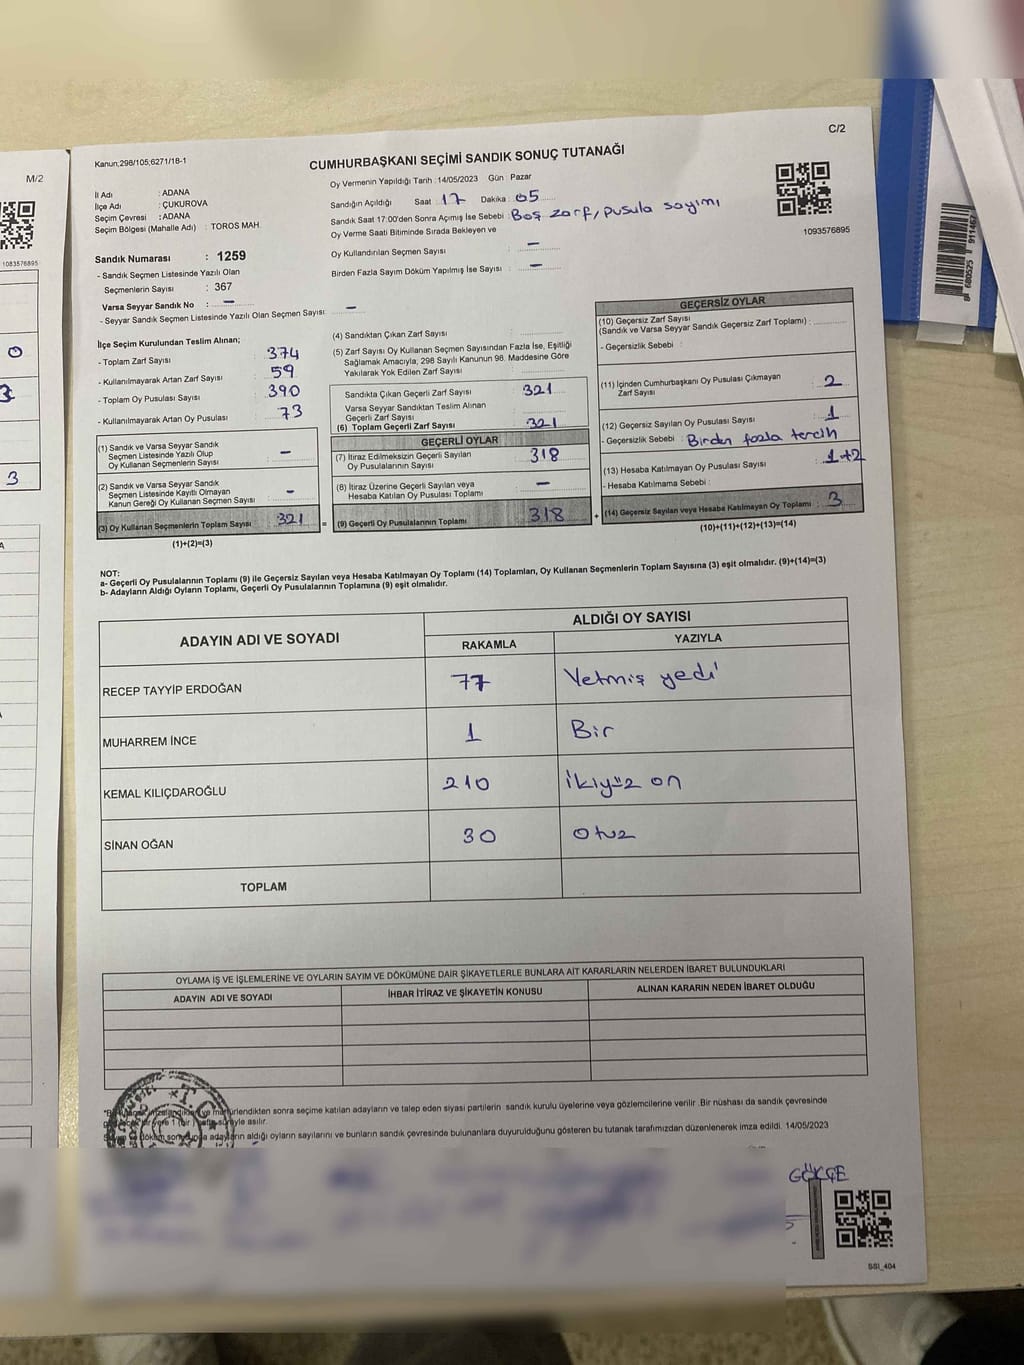 M/2
1083576895
0
3
3
A
C/2
Kanun;298/105;6271/18-1
CUMHURBAŞKANI SEÇİMİ SANDIK SONUÇ TUTANAĞI
İl Adı : ADANA
İlçe Adı : ÇUKUROVA
Seçim Çevresi : ADANA
Seçim Bölgesi (Mahalle Adı) : TOROS MAH.
Oy Vermenin Yapıldığı Tarih :14/05/2023 Gün : Pazar
Sandığın Açıldığı Saat 17 Dakika : 05
Sandık Saat 17:00'den Sonra Açımış İse Sebebi : Boş zarf, pusula sayımı
Oy Verme Saati Bitiminde Sırada Bekleyen ve
Oy Kullandırılan Seçmen Sayısı : –
Birden Fazla Sayım Döküm Yapılmış İse Sayısı : –
1093576895
Sandık Numarası : 1259
- Sandık Seçmen Listesinde Yazılı Olan
Seçmenlerin Sayısı : 367
Varsa Seyyar Sandık No : –
- Seyyar Sandık Seçmen Listesinde Yazılı Olan Seçmen Sayısı: –
İlçe Seçim Kurulundan Teslim Alınan;
- Toplam Zarf Sayısı : 374
- Kullanılmayarak Artan Zarf Sayısı : 59
- Toplam Oy Pusulası Sayısı : 390
- Kullanılmayarak Artan Oy Pusulası : 73
(1) Sandık ve Varsa Seyyar Sandık
Seçmen Listesinde Yazılı Olup
Oy Kullanan Seçmenlerin Sayısı : –
(2) Sandık ve Varsa Seyyar Sandık
Seçmen Listesinde Kayıtlı Olmayan
Kanun Gereği Oy Kullanan Seçmen Sayısı : –
(3) Oy Kullanan Seçmenlerin Toplam Sayısı : 321 =
(1)+(2)=(3)
(4) Sandıktan Çıkan Zarf Sayısı :
(5) Zarf Sayısı Oy Kullanan Seçmen Sayısından Fazla İse, Eşitliği
Sağlamak Amacıyla; 298 Sayılı Kanunun 98. Maddesine Göre
Yakılarak Yok Edilen Zarf Sayısı :
Sandıkta Çıkan Geçerli Zarf Sayısı : 321
Varsa Seyyar Sandıktan Teslim Alınan
Geçerli Zarf Sayısı :
(6) Toplam Geçerli Zarf Sayısı : 321
GEÇERLİ OYLAR
(7) İtiraz Edilmeksizin Geçerli Sayılan
Oy Pusulalarının Sayısı : 318
(8) İtiraz Üzerine Geçerli Sayılan veya
Hesaba Katılan Oy Pusulası Toplamı : –
(9) Geçerli Oy Pusulalarının Toplamı : 318 +
GEÇERSİZ OYLAR
(10) Geçersiz Zarf Sayısı
(Sandık ve Varsa Seyyar Sandık Geçersiz Zarf Toplamı) :
- Geçersizlik Sebebi :
(11) İçinden Cumhurbaşkanı Oy Pusulası Çıkmayan
Zarf Sayısı : 2
(12) Geçersiz Sayılan Oy Pusulası Sayısı : 1
- Geçersizlik Sebebi : Birden fazla tercih
(13) Hesaba Katılmayan Oy Pusulası Sayısı : 1+2
- Hesaba Katılmama Sebebi :
(14) Geçersiz Sayılan veya Hesaba Katılmayan Oy Toplamı : 3
(10)+(11)+(12)+(13)=(14)
NOT:
a- Geçerli Oy Pusulalarının Toplamı (9) ile Geçersiz Sayılan veya Hesaba Katılmayan Oy Toplamı (14) Toplamları, Oy Kullanan Seçmenlerin Toplam Sayısına (3) eşit olmalıdır. (9)+(14)=(3)
b- Adayların Aldığı Oyların Toplamı, Geçerli Oy Pusulalarının Toplamına (9) eşit olmalıdır.
ADAYIN ADI VE SOYADI ALDIĞI OY SAYISI
RAKAMLA YAZIYLA
RECEP TAYYİP ERDOĞAN 77 Yetmiş yedi
MUHARREM İNCE 1 Bir
KEMAL KILIÇDAROĞLU 210 İkiyüz on
SİNAN OĞAN 30 otuz
TOPLAM
OYLAMA İŞ VE İŞLEMLERİNE VE OYLARIN SAYIM VE DÖKÜMÜNE DAİR ŞİKAYETLERLE BUNLARA AİT KARARLARIN NELERDEN İBARET BULUNDUKLARI
ADAYIN ADI VE SOYADI İHBAR İTİRAZ VE ŞİKAYETİN KONUSU ALINAN KARARIN NEDEN İBARET OLDUĞU
T.C.
sonra seçime katılan adayların ve talep eden siyasi partilerin sandık kurulu üyelerine veya gözlemcilerine verilir .Bir nüshası da sandık çevresinde
süreyle asılır.
adayların aldığı oyların sayılarını ve bunların sandık çevresinde bulunanlara duyurulduğunu gösteren bu tutanak tarafımızdan düzenlenerek imza edildi. 14/05/2023
GÖKÇE
SSI_404
8 680525 911467